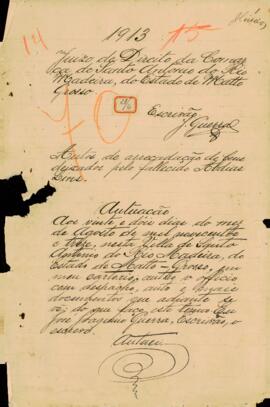 1913
14
15
Juizo de Direito da Comar
ca de Santo Antonio do Rio
Madeira, do Estado de Matto
Grosso
70
Escrivão
J. Guerra
Autos de arrecadação de bens
deixados pelo fallecido
Autuação
Aos vinte e dois dias do mez
de Agosto de mil novecentos
e treze, nesta Villa de Santo
Antonio do Rio Madeira, do
Estado de Matto-Grosso, em
meu cartorio, autuo o officio
com despacho, auto e mais
documentos que adiante se
vê; do que faço este termo. Eu
José Guerra, Escrivão, o
escrevo.